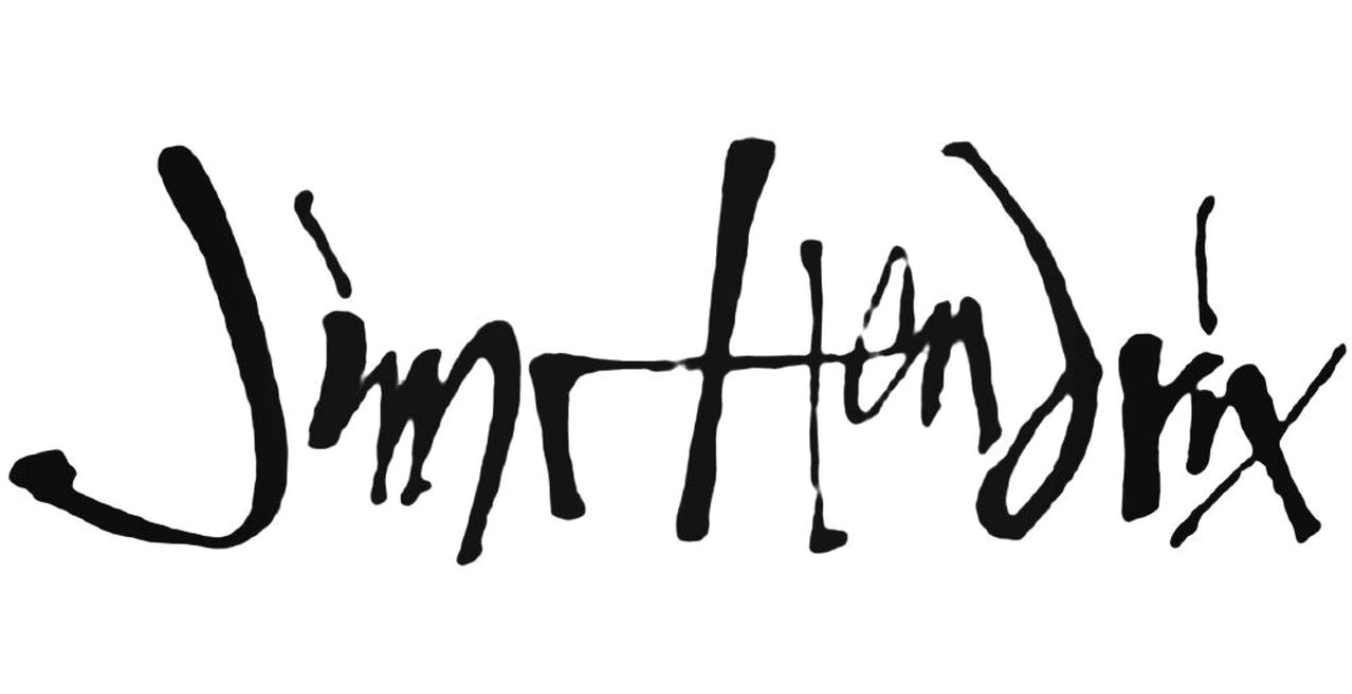 Jimi Hendrix